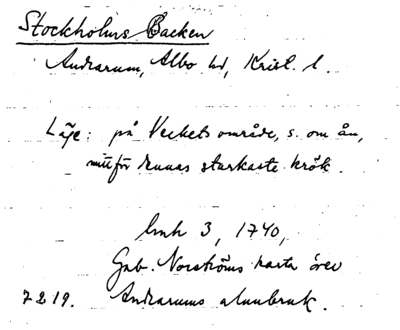 Stockholms Backen
Andrarum, Albo hd, Krist. l.
Läge: på Verkets område, s. om ån,
mitt för dennas starkaste krök.
lmh 3, 1740,
Gab. Norströms karta över
7219. Andrarums alunbruk.